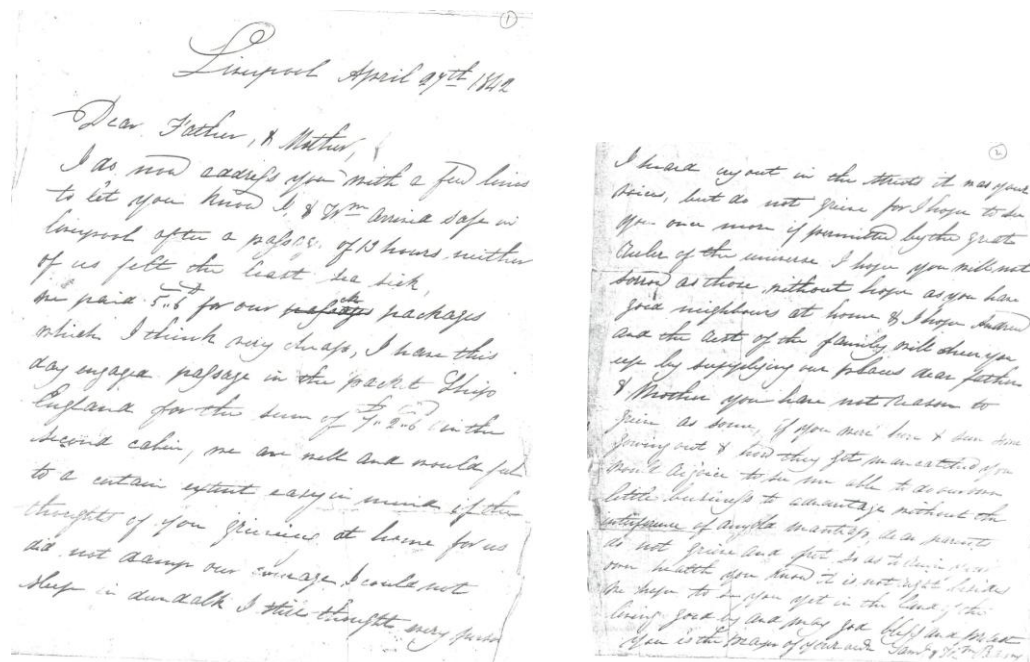 1
Liverpool April 27th 1842
Dear Father, & Mother,
I do now address you with a few lines
to let you know I & Wm arrived safe in
liverpool after a passage of 13 hours neither
of us felt the least sea sick,
we paid 5s..6d for our packages
which I think very cheap, I have this
day engaged passage in the packet Ship
England for the sum of £7..2..6 in the
second cabin, we are well and would feel
to a certain extent easy in mind if the
thoughts of you grieving at home for us
did not damp our courage I could not
sleep in dundalk I still thought every person
2
I heard cry out in the streets it was your
voices, but do not grieve for I hope to see
you once more if permitted by the great
Ruler of the universe I hope you will not
sorrow as those without hope as you have
good neighbours at home & I hope Andrew
and the rest of the family will cheer you
up by supplying our places dear father
& Mother you have not reason to
grieve as some, if you were here & seen some
going out & how they get man
would rejoice to see us able to do our own
little business to advantage without the
interference of any old mans dear parents
do not grieve and fret so as to your
own health you know it is not right besides
we hope to see you yet in the land of the
living good by and may god bless and protect
you is the prayer of your